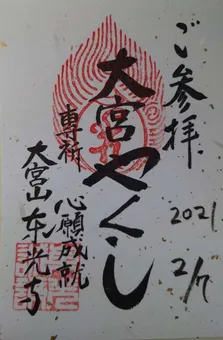 ご参拝
2021
2/7
大宮やくし
専祈
心願成就
大宮山東光寺